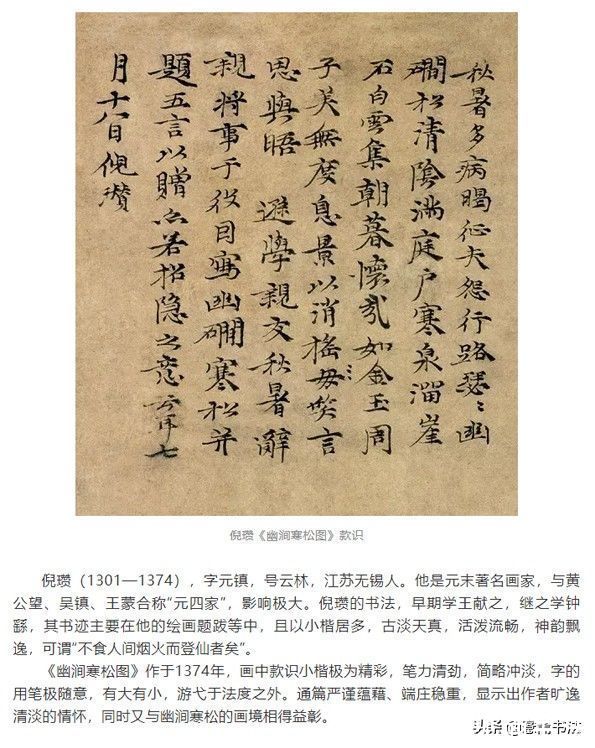 秋暑多病暍征夫怨行路瑟〻幽
磵松清陰滿庭戶寒泉溜崖
石白雲集朝暮懷哉如金玉周
子美無度息景以消搖毋笑言
思與晤 遜學親友秋暑辭
親將事于役因寫幽磵寒松并
題五言以贈亦若招隱之意云耳七
月十八日倪瓚
倪瓒《幽涧寒松图》款识
倪瓒（1301—1374），字元镇，号云林，江苏无锡人。他是元末著名画家，与黄
公望、吴镇、王蒙合称“元四家”，影响极大。倪瓒的书法，早期学王献之，继之学钟
繇，其书迹主要在他的绘画题跋等中，且以小楷居多，古淡天真，活泼流畅，神韵飘
逸，可谓“不食人间烟火而登仙者矣”。
《幽涧寒松图》作于1374年，画中款识小楷极为精彩，笔力清劲，简略冲淡，字的
用笔极随意，有大有小，游弋于法度之外。通篇严谨蕴藉、端庄稳重，显示出作者旷逸
清淡的情怀，同时又与幽涧寒松的画境相得益彰。
头条 书法